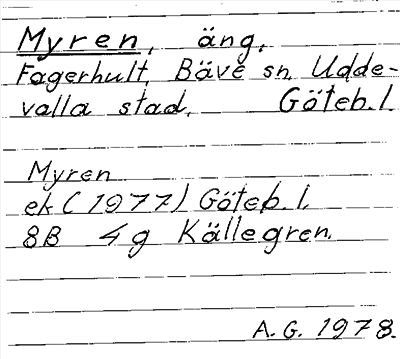 Myren, äng.
Fagerhult, Bäve sn. Udde-
valla stad. Göteb. l.
Myren
ek (1977) Göteb. l.
8B 4g Källegren.
A. G. 1978.